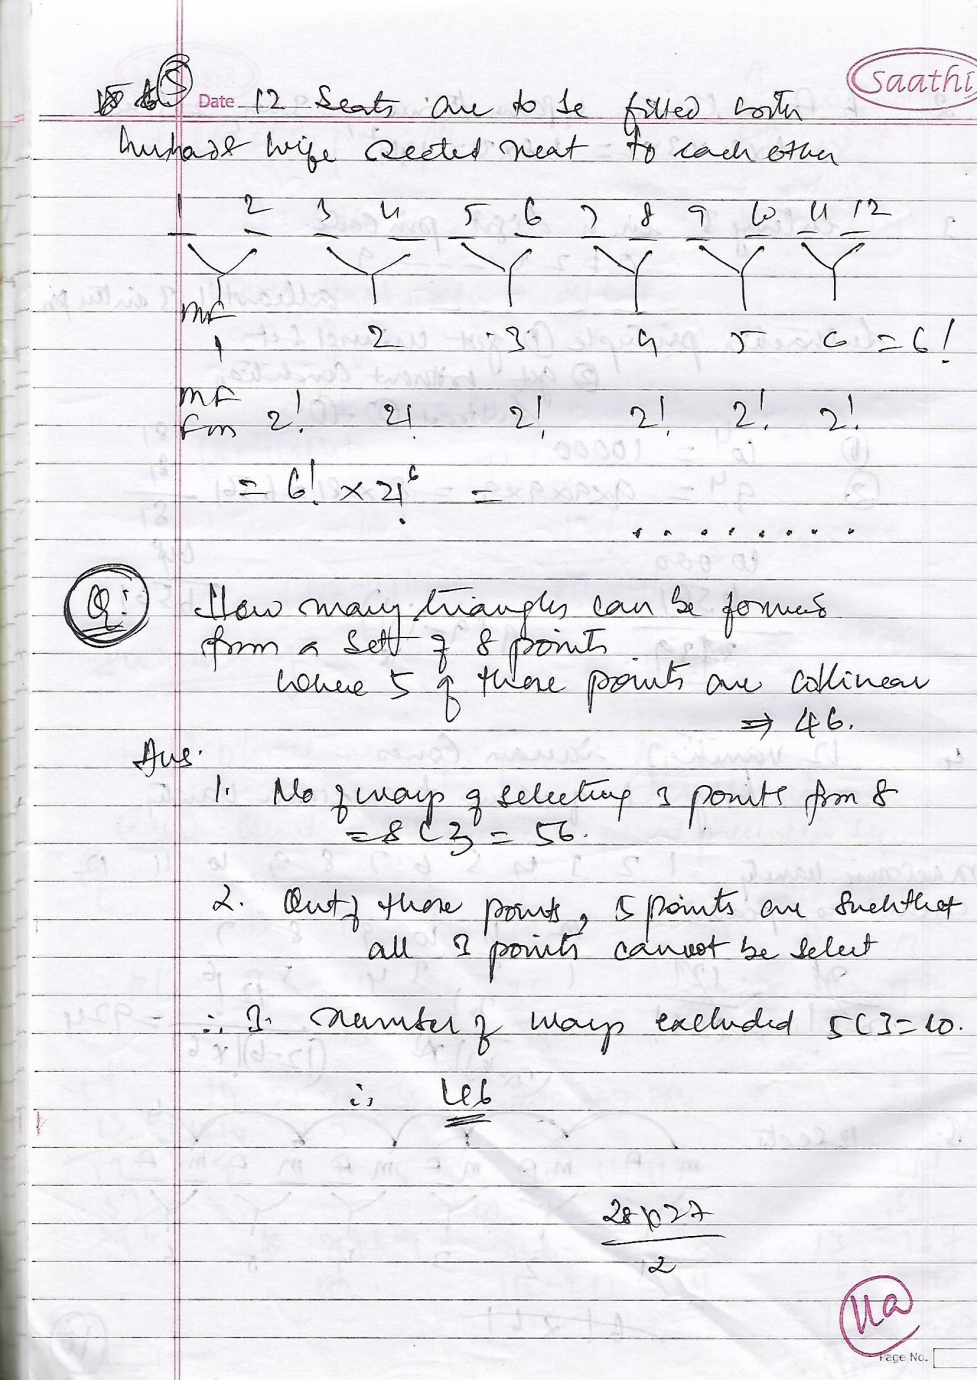 5
Saathi
Date 12 Seats are to be filled with
husband & wife seated next to each other
1 2 3 4 5 6 7 8 9 10 11 12
MF
1 2 3 4 5 6 = 6!
MF
For 2! 2! 2! 2! 2! 2!
= 6! × 2!⁶ =
. . . . . . . .
Q: How many triangles can be formed
from a set of 8 points
where 5 of these points are collinear
⇒ 46.
Ans.
1. No of ways of selecting 3 points from 8
= 8C3 = 56.
2. Out of these points, 5 points are such that
all 3 points cannot be select
∴ 3. number of ways excluded 5C3 = 10.
∴ 46
28 × 27
2
11a
Page No.